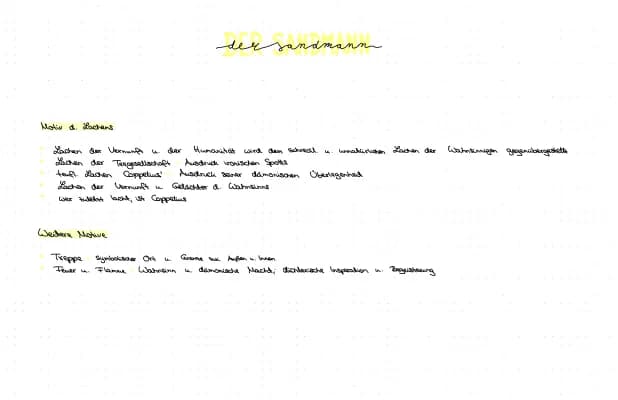 DER SANDMANN
der sandmann
Motiv d. Lachens
Lachen der Vernunft u. der Humanität wird dem schrecll u. unnatürlichen Lachen der Wahnsinnigen gegenübergestellt
Lachen der Teegesellschaft: Ausdruck ironischen Spotts
teufl. Lachen Coppelius': Ausdruck seiner dämonischen Überlegenheit
Lachen der Vernunft u. Gelächter d. Wahnsinns
wer zuletzt lacht, ist Coppelius
Weitere Motive
Treppe: symbolischer Ort u. Grenze zw. Außen u. Innen
Feuer u. Flamme: Wahnsinn u. dämonische Macht, dichterische Inspiration u. Begeisterung